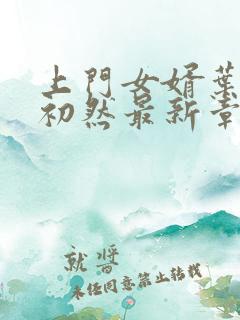 上門女婿葉
初然最新章
就醬
未经同意禁止转载